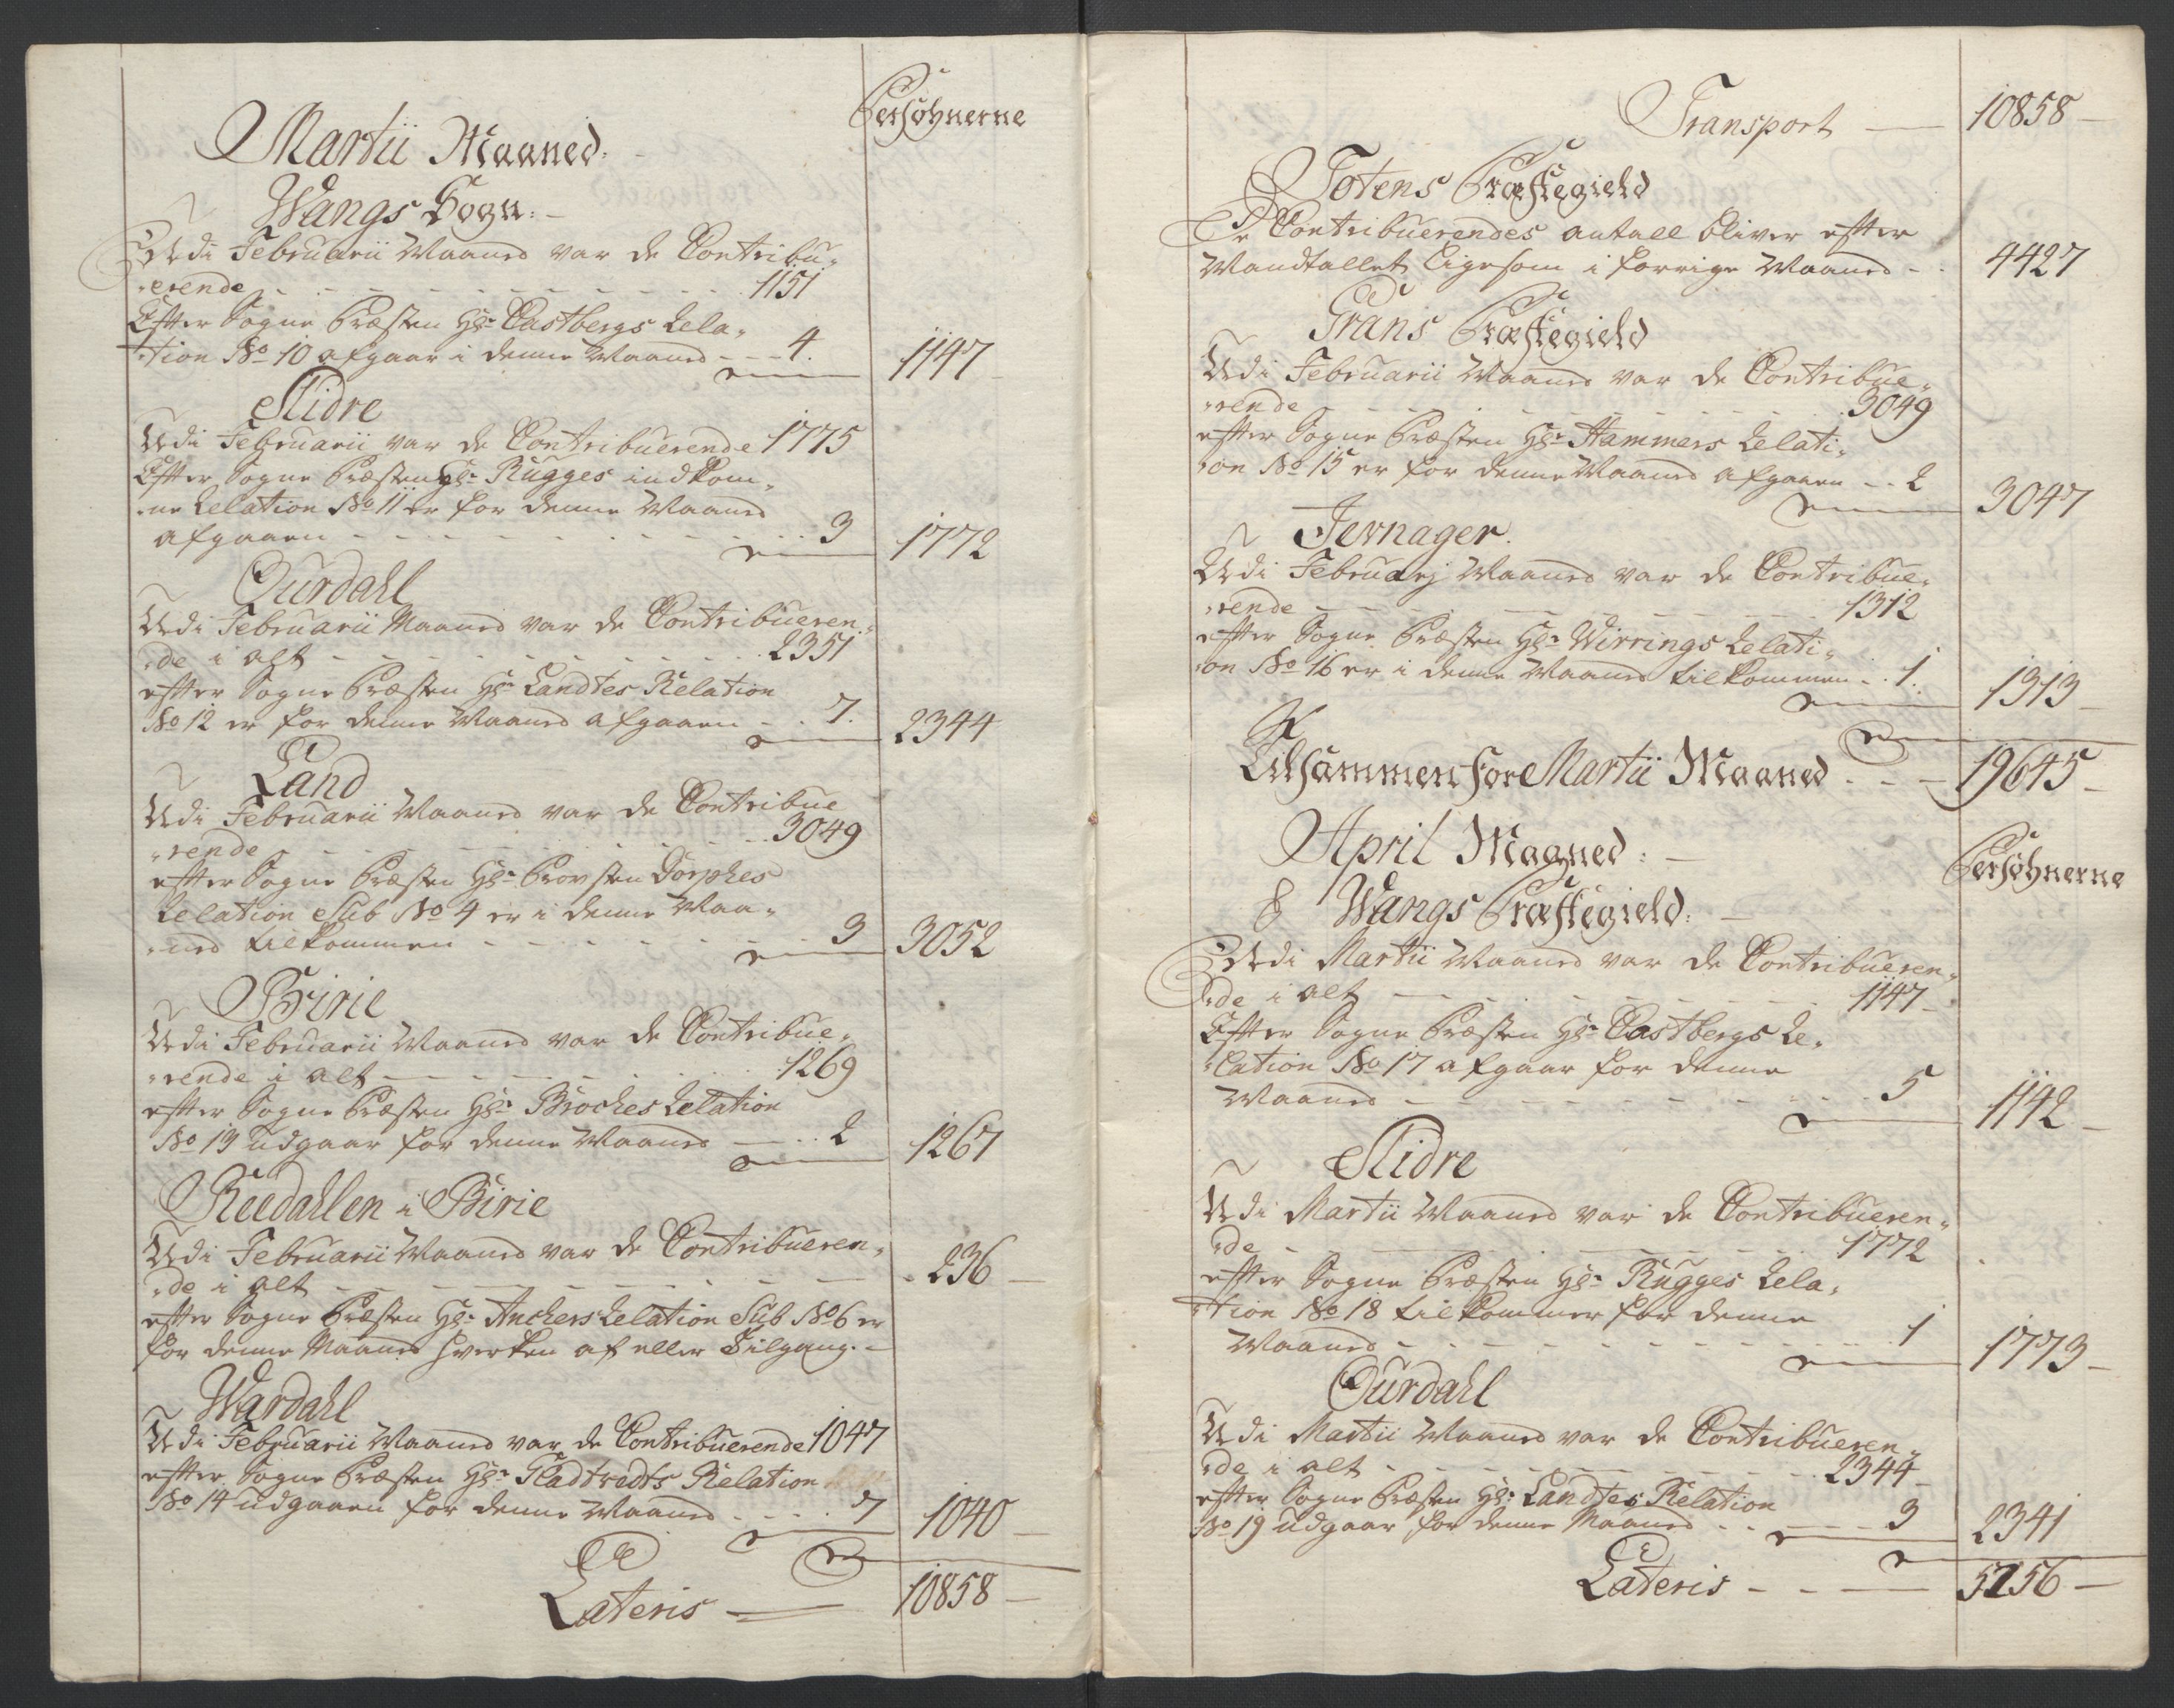 Persohnerne
Martii Maaned.
Wangs Sogn.
Udi Februarii Maaned var de Contribu-
erende 1151
Efter Sogne Præsten Hr. Castbergs Rela-
tion No 10 afgaar i denne Maaned 4. 1147
Slidre
Udi Februarii var de Contribuerende 1775
Efter Sogne Præsten Hr. Rugges indkom-
ne Relation No 11 er for denne Maaned
afgaaen 3 1772
Ourdahl
Udi Februarii Maaned var de Contribueren-
de i alt 2351
efter Sogne Præsten Hr. Landtes Relation
No 12 er for denne Maaned afgaaen 7. 2344
Land
Udi Februarii Maaned var de Contribue
rende 3049
efter Sogne Præsten Hr. Provsten Dorphes
Relation Sub No 4 er i denne Maa-
ned tilkommen 3 3052
Birie
Udi Februarii Maaned var de Contribue-
rende i alt 1269
efter Sogne Præsten Hr. Broches Relation
No 13 udgaar for denne Maaned 2 1267
Reedahlen i Birie
Udi Februarii Maaned var de Contribueren-
de i alt 236
efter Sogne Præsten Hr. Anchers Relation Sub No 6 er
for denne Maaned hverken af eller Tilgang.
Wardahl
Udi Februarii Maaned var de Contribuerende 1047
efter Sogne Præsten Hr. Gladtvedts Relation
No 14 udgaaen for denne Maaned 7 1040
Lateris 10858
Transport 10858
Totens Præstegield
De Contribuerendes antall bliver efter
Mandtallet ligesom i forrige Maaned 4427
Grans Præstegield
Udi Februarii Maaned var de Contribue-
rende 3049
efter Sogne Præsten Hr. Hammers Relati-
on No 15 er for denne Maaned afgaaen 2 3047
Jevnager.
Udi Februarj Maaned var de Contribue-
rende 1312
efter Sogne Præsten Hr. Wirrings Relati-
on No 16 er i denne Maaned tilkommen 1. 1313
Tilsammen for Martii Maaned 19645
April Maaned.
Persohnerne
Wangs Præstegield.
Udi Martii Maaned var de Contribueren-
de i alt 1147
Efter Sogne Præsten Hr. Castbergs Re-
lation No 17 afgaar for denne
Maaned 5 1142
Slidre
Udi Martii Maaned var de Contribueren-
de 1772
efter Sogne Præsten Hr. Rugges Rela-
tion No 18 tilkommer for denne
Maaned 1 1773
Ourdahl
Udi Martii Maaned var de Contribueren-
de i alt 2344
efter Sogne Præsten Hr. Landtes Relation
No 19 udgaar for denne Maaned 3 2341
Lateris 5256